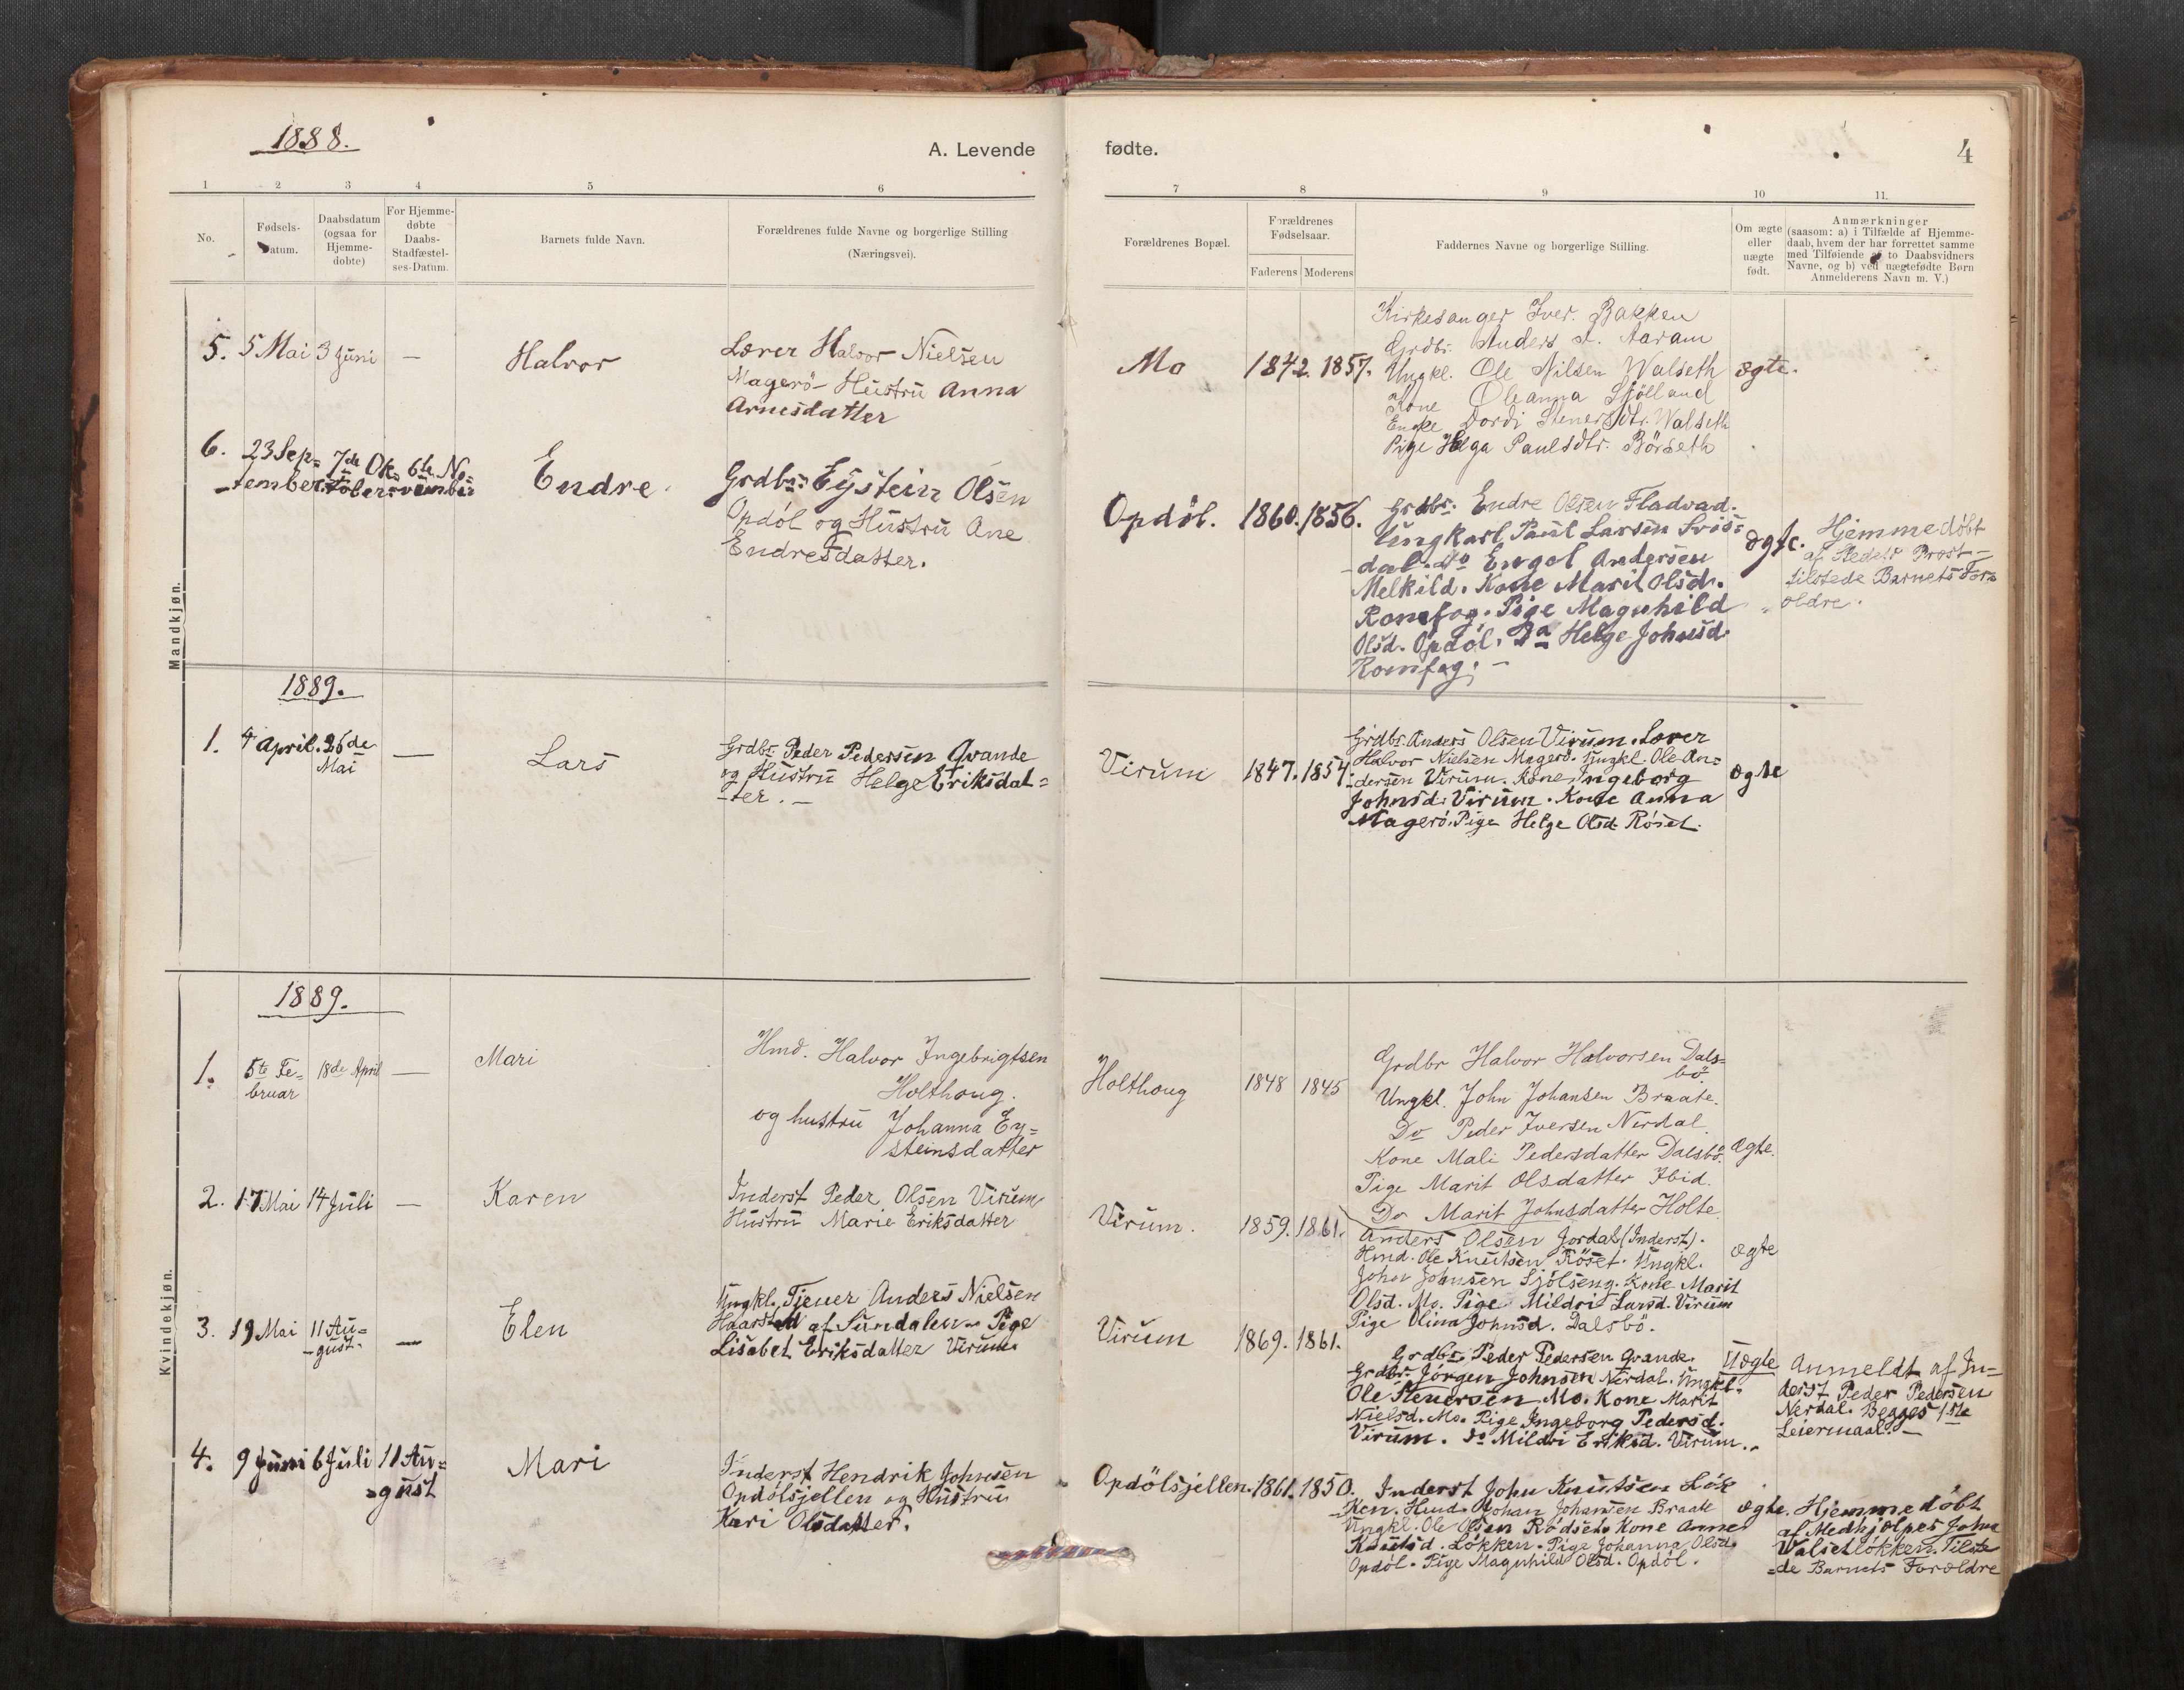 1888.
A. Levende
fødte.
4
1
2
3
4
5
6
7
8
9
10
11.
No.
Fødsels-
Datum.
Daabsdatum
(ogsaa for
Hjemme-
dobte)
For Hjemme-
døbte
Daabs-
Stadfæstel-
ses-Datum.
Barnets fulde Navn.
Forældrenes fulde Navne og borgerlige Stilling
(Næringsvei).
Forældrenes Bopæl.
Forældrenes
Fødselsaar.
Faderens
Moderens
Faddernes Navne og borgerlige Stilling.
Om ægte
eller
uægte
født.
Anmærkninger
(saasom: a) i Tilfælde af Hjemme-
daab, hvem der har forrettet samme
med Tilføiende af to Daabsvidners
Navne, og b) ved uægtefødte Børn
Anmelderens Navn m. V.)
Mandkjøn.
5. 5 Mai 3 Juni —
Halvor
Lærer Halvor Nielsen
Magerö Hustru Anna
Arnesdatter
Mo
1842. 1857.
Kirkesanger Iver. Bakken
Grdbr. Anders A. Aaram
Ungkl. Ole Nilsen Walseth
Kone Oleanna Sjölland
Enke Dordi Stenersdtr. Walseth
Pige Helga Paulsdtr. Börseth
ægte.
6. 23 Sep=
tember
7de Ok=
tober
6te No=
vember
Endre.
Grdbr. Eystein Olsen
Opdöl og Hustru Ane
Endresdatter.
Opdöl.
1860. 1856.
Grdbr. Endre Olsen Fladvad.
Ungkarl Paul Larsen Svis=
dal. do Engel Andersen
Melkild. Kone Marit Olsd.
Romfog. Pige Magnhild
Olsd. Opdöl. Do Helge Johnsd.
Romfog. —
ægte.
Hjemmedöbt
af Stedets Prest —
tilstede Barnets For=
ældre.
1889.
1. 4 April. 26de
Mai
—
Lars
Grdbr. Peder Pedersen Grande
og Hustru Helge Eriksdat=
ter. —
Virum
1847. 1854
Grdbr. Anders Olsen Virum. Lærer
Halvor Nielsen Magerö. Ungkl. Ole An=
dersen Virum. Kone Ingeborg
Johnsd. Virum. Kone Anna
Magerö. Pige Helge Olsd. Röset.
ægte
Kvindekjøn.
1889.
1. 5te Fe=
bruar
18de April
—
Mari
Hmd. Halvor Ingebrigtsen
Holthoug.
og hustru Johanna Ey=
steinsdatter
Holthoug
1848 1845
Grdbr Halvor Halvorsen Dals=
bö.
Ungkl. John Johansen Braate.
Do Peder Iversen Nerdal.
Kone Mali Pedersdatter Dalsbö.
Pige Marit Olsdatter Ibid.
Do Marit Johnsdatter Holte.
Ægte.
2. 17 Mai 14 Juli —
Karen
Inderst Peder Olsen Virum
Hustru Marie Eriksdatter
Virum.
1859. 1861.
Anders Olsen Jordal (Inderst).
Hmd. Ole Knutsen Röset. Ungkl.
John Johnsen Sjölseng. Kone Marit
Olsd. Mo. Pige Mildri Larsd. Virum
Pige Olina Johnsd. Dalsbö.
ægte
3. 19 Mai 11 Au=
gust.
—
Elen
Ungkl. Tjener Anders Nielsen
Haarstad af Sundalen. Pige
Lisabet Eriksdatter Virum.
Virum
1869. 1861.
Grdbr. Peder Pedersen Grande.
Grdbr. Jörgen Johnsen Nerdal. Ungkl.
Ole Stenersen Mo. Kone Marit
Nielsd. Mo. Pige Ingeborg Pedersd.
Virum. do Mildri Eriksd. Virum.
Uægte
Anmeldt af In=
derst Peder Pedersen
Nerdal. Begges 1ste
Leiermaal. —
4. 9 Juni 6 Juli 11 Au=
gust
Mari
Inderst Hendrik Johnsen
Opdölsjellen og Hustru
Kari Olsdatter.
Opdölsjellen. 1861. 1850.
Inderst John Knutsen Lök
ken. Hmd. Johan Johansen Braate
Ungkl. Ole Olsen Rödset. Kone Anne
Knutsd. Lökken. Pige Johanna Olsd.
Opdöl. Pige Magnhild Olsd. Opdöl.
ægte.
Hjemmedöbt
af Medhjælper John
Walsetlökken. Tilste
=de Barnets Forældre